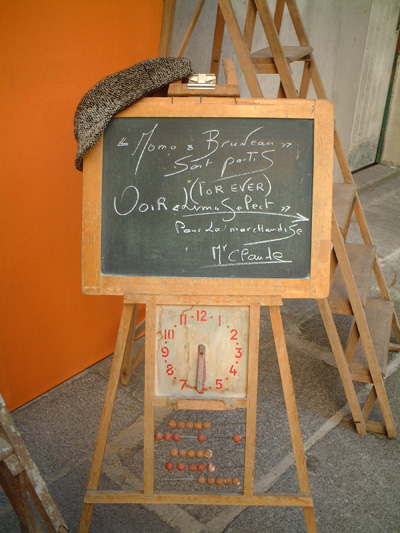 "Momo & Bruneau"
Sont partis
(FOR EVER)
Voir
Pour la marchandise
Mr Claude
11 12 1
10 2
9 3
8 4
7 5